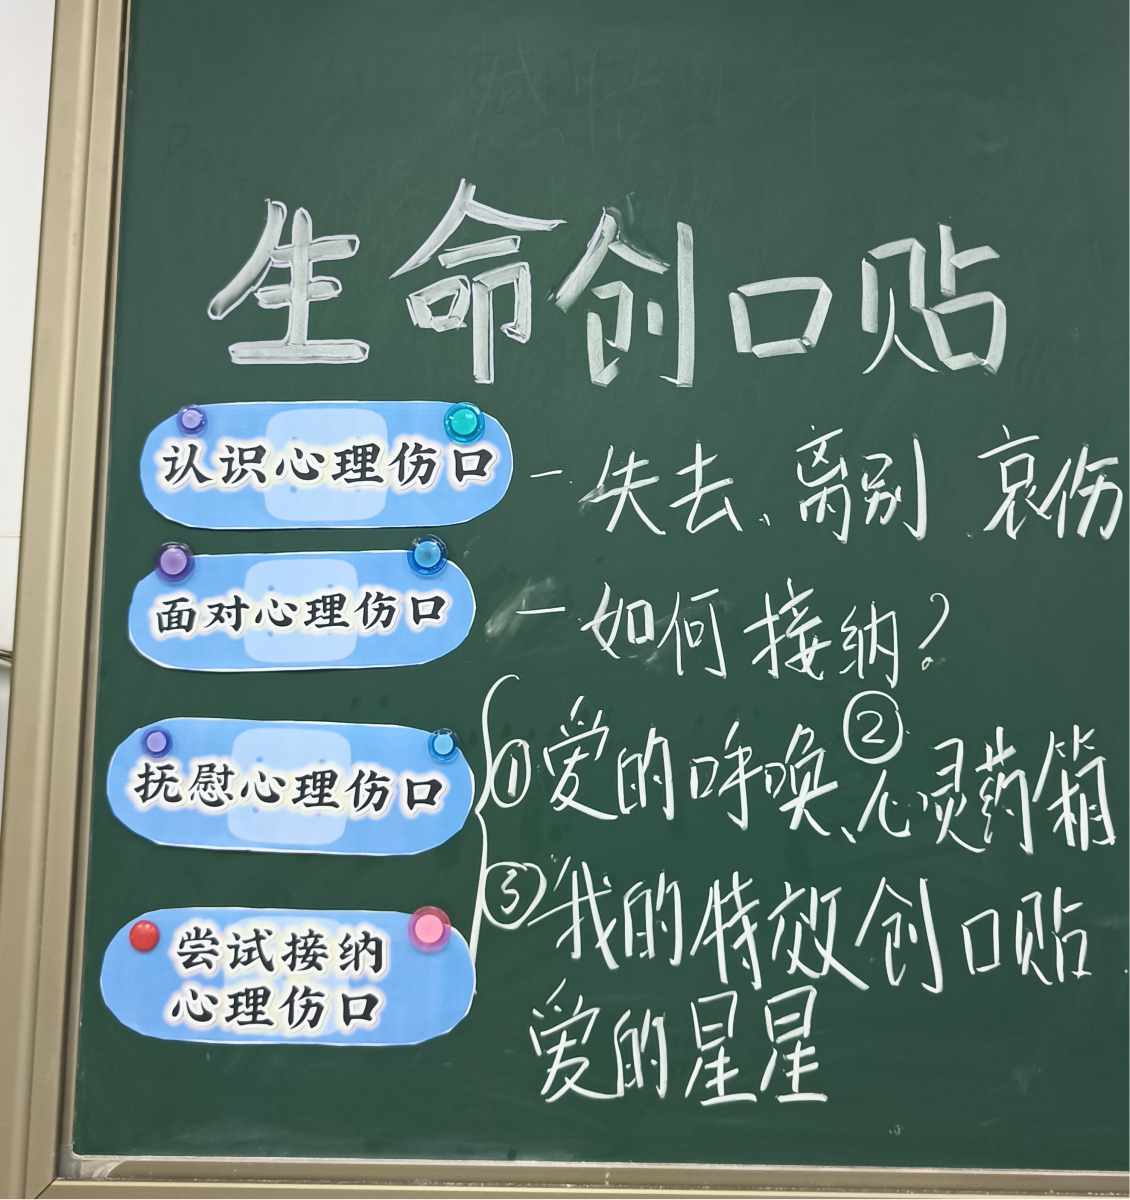 生命创口贴
认识心理伤口 - 失去、离别 哀伤
面对心理伤口 - 如何接纳?
抚慰心理伤口 ①爱的呼唤、②心灵药箱
③我的特效创口贴
尝试接纳
心理伤口
爱的星星